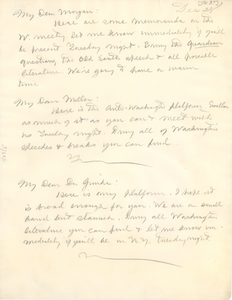 My Dear Morgan:
Here are some memoranda on the
N. meeting. Let me know immediately if you'll
be present Tuesday night. Bring the Guardian
questions, the Old South speech & all possible
literature. We're going to have a warm
time.
My Dear
Here is the Anti-Washington platform. Scatter
as much of it as you can & meet with
us Tuesday night. Bring all of Washington's
speeches & breaks you can find
My Dear
Here is our platform. I hope it
is broad enough for you. We are a small
band but staunch. Bring all Washington
literature you can find & let me know im-
mediately if you'll be in N.Y. Tuesday night